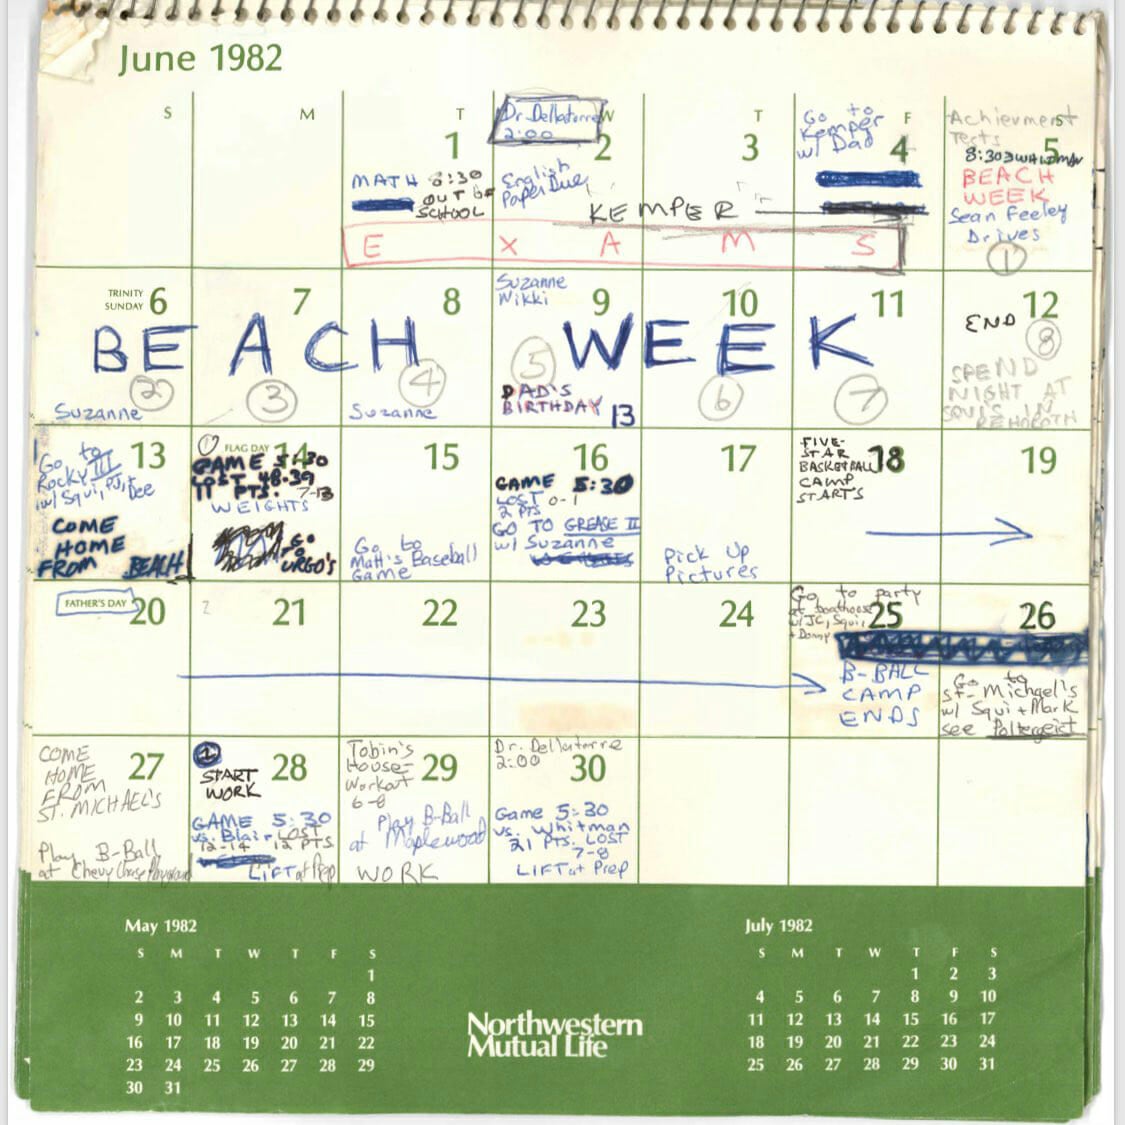 June 1982
S M T W T F S
1
MATH 8:30
OUT OF
SCHOOL
Dr. Dellatorre
2:00
2
English
Paper Due,
3
KEMPER
Go to
Kemper
w/ Dad
4
Achievment
Tests
5
8:30 @ WHITMAN
BEACH
WEEK
Sean Feeley
Drives
1
E X A M S
TRINITY
SUNDAY 6
7
8
Suzanne
Nikki
9
10
11
12
END
8
BEACH WEEK
2
3
4
5
6
7
Suzanne
Suzanne
DAD'S
BIRTHDAY 13
SPEND
NIGHT AT
SQUI'S IN
REHOBOTH
Go to 13
Rocky III
w/ Squi, PJ,
Dee
COME
HOME
FROM BEACH
FLAG DAY 14
GAME 5:30
LOST 48-39
11 PTS. 7-13
WEIGHTS
GO
TO
URGO'S
15
Go to
Matt's Baseball
Game
16
GAME 5:30
LOST 0-1
2 PTS
GO TO GREASE II
w/ Suzanne
17
Pick Up
Pictures
FIVE-
STAR
BASKETBALL 18
CAMP
START'S
19
FATHER'S DAY 20
2
21
22
23
24
Go to party
at boathouse
w/ JC, Squi, 25
+ Donny
B-BALL
CAMP
ENDS
26
Go to
St. Michael's
w/ Squi + Mark
see Poltergeist
COME
HOME 27
FROM
ST. MICHAEL'S
Play B-Ball
at Chevy Chase Playground
28
START
WORK
GAME 5:30
vs. Blair LOST
12-14 12 PTS
LIFT at Prep
Tobin's
House- 29
Workout
6-8
Play B-Ball
at Maplewood
WORK
Dr. Dellatorre
2:00 30
Game 5:30
vs. Whitman
21 PTS. LOST
7-8
LIFT at Prep
May 1982
S M T W T F S
1
2 3 4 5 6 7 8
9 10 11 12 13 14 15
16 17 18 19 20 21 22
23 24 25 26 27 28 29
30 31
Northwestern
Mutual Life
July 1982
S M T W T F S
1 2 3
4 5 6 7 8 9 10
11 12 13 14 15 16 17
18 19 20 21 22 23 24
25 26 27 28 29 30 31